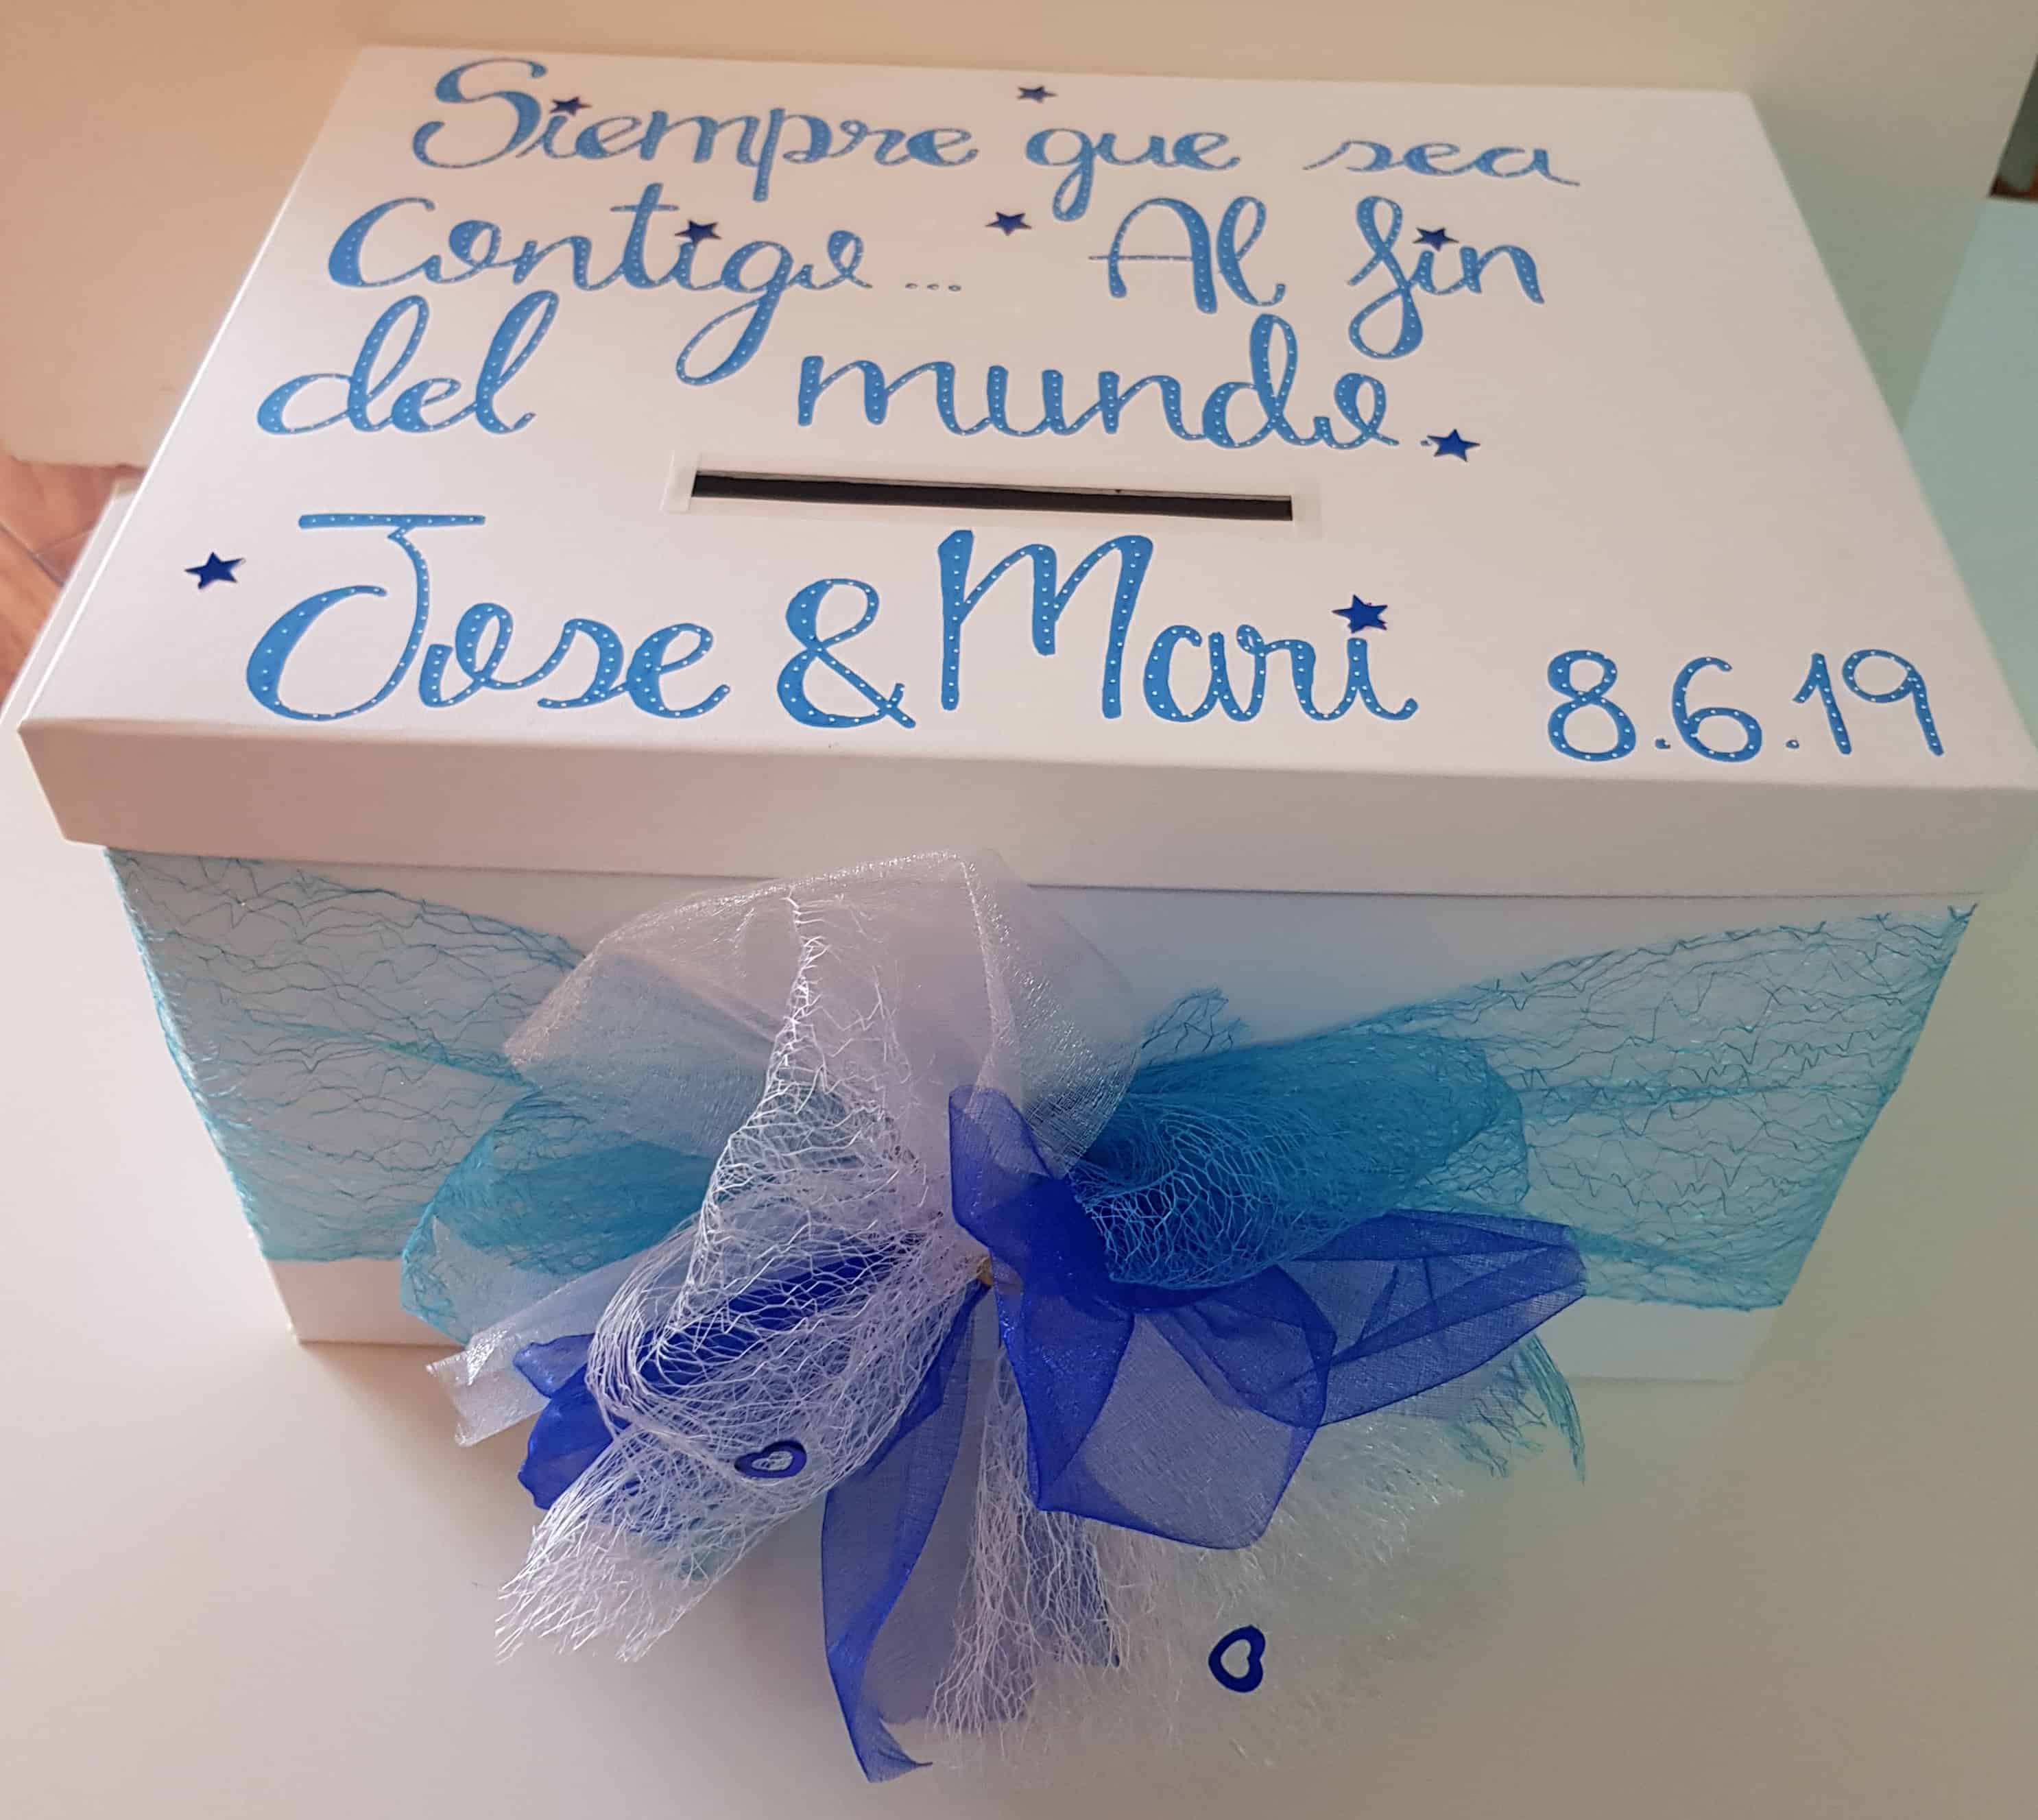 Siempre que sea
Contigo... Al fin
del mundo.
Jose & Mari 8.6.19